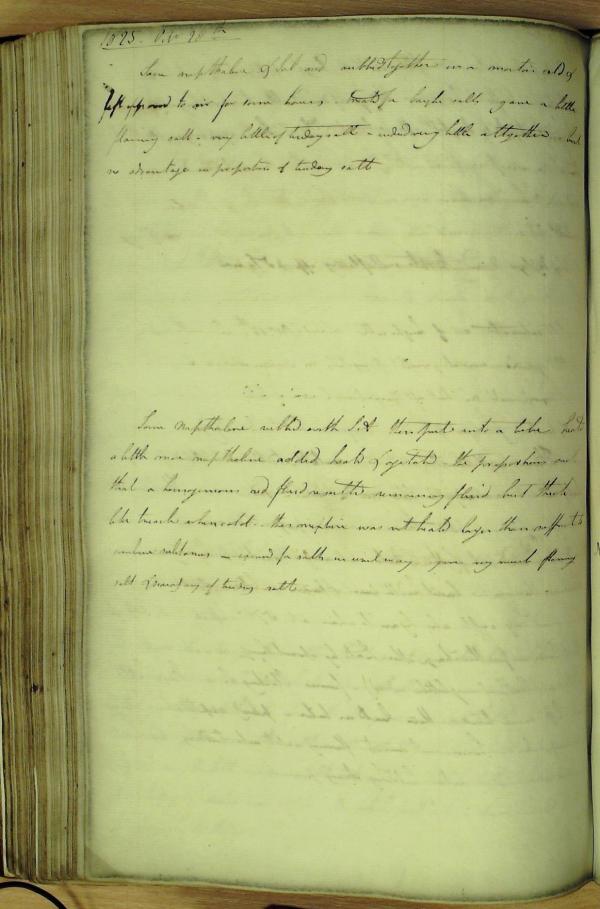 1825. Oct 20th
Some napthaline & Sul and rubbed together in a mortar and
left exposed to air for some hours. treated for baryta salts gave a little
flaming salt - very little of tinder salt - indeed very little altogether - 
no advantage in proportion of tinder salt
Some Napthaline rubbed with S.A then put into a tube heated
a little more napthaline added heated & agitated the proportions
that a homogeneous red fluid resulted remaining fluid but thick
like treacle when cold. this mixture was not heated longer than sufficient to
for salts in usual way gave very much flaming
salt & scarcely any of tinder salt